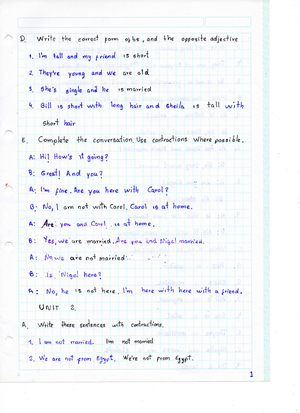 D. Write the correct form of be, and the opposite adjective
1. I'm tall and my friend is short
2. They're young and we are old
3. She's single and he is married
4. Bill is short with long hair and Sheila is tall with
short hair
E. Complete the conversation. Use contractions where possible.
A: Hi! How's it going?
B: Great! And you?
A: I'm fine. Are you here with Carol?
B: No, I am not with Carol. Carol is at home.
A: Are you and Carol is at home.
B: Yes, we are married. Are you and Nigel married.
A: No we are not married
B: Is Nigel here?
A: No, he is not here. I'm here with here with a friend.
UNIT 2.
A. Write these sentences with contractions.
1. I am not married. I'm not married
2. We are not from Egypt. We're not from Egypt.
1